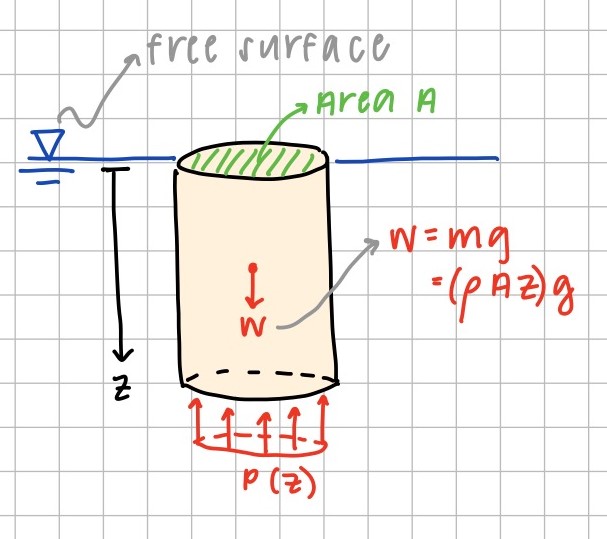 free surface
Area A
W = mg
= (ρAz)g
W
z
P(z)